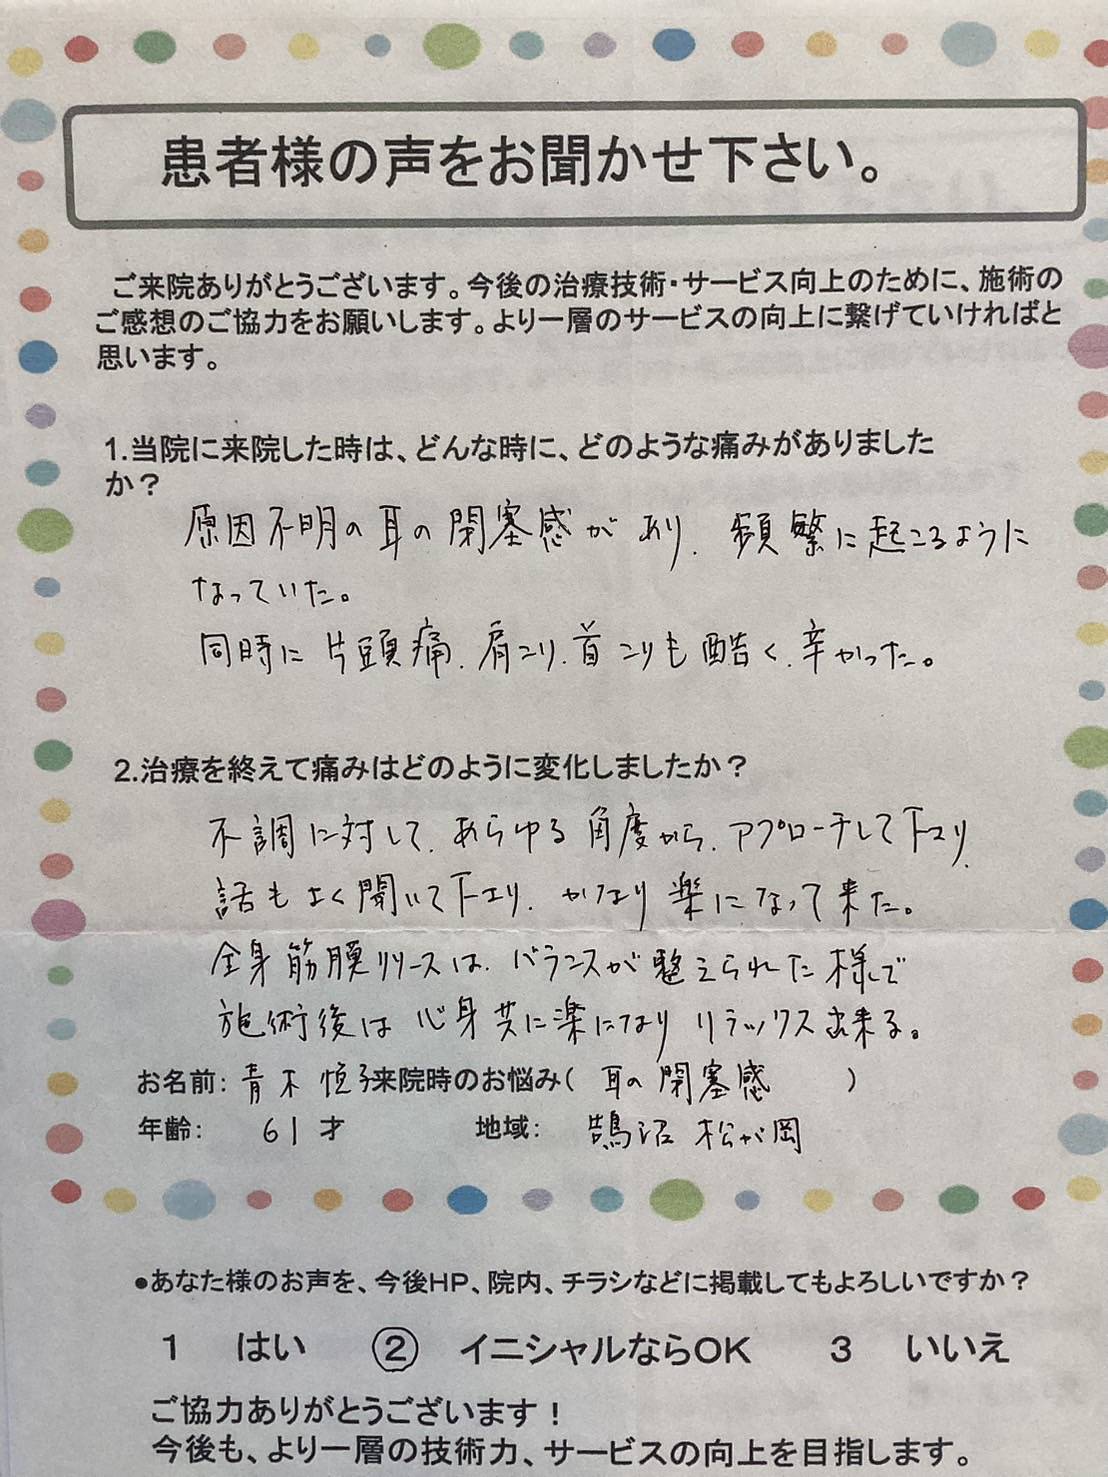 患者様の声をお聞かせ下さい。
ご来院ありがとうございます。今後の治療技術・サービス向上のために、施術の
ご感想のご協力をお願いします。より一層のサービスの向上に繋げていければと
思います。
1.当院に来院した時は、どんな時に、どのような痛みがありました
か？
原因不明の耳の閉塞感があり、頻繁に起こるように
なっていた。
同時に片頭痛、肩こり、首こりも酷く、辛かった。
2.治療を終えて痛みはどのように変化しましたか？
不調に対して、あらゆる角度から、アプローチして下さり、
話もよく聞いて下さり、かなり楽になって来た。
全身筋膜リリースは、バランスが整えられた様で
施術後は心身共に楽になりリラックス出来る。
お名前: 青木 恒子 来院時のお悩み( 耳の閉塞感 )
年齢: 61才 地域: 鵠沼 松が岡
●あなた様のお声を、今後HP、院内、チラシなどに掲載してもよろしいですか？
1 はい ② イニシャルならOK 3 いいえ
ご協力ありがとうございます！
今後も、より一層の技術力、サービスの向上を目指します。